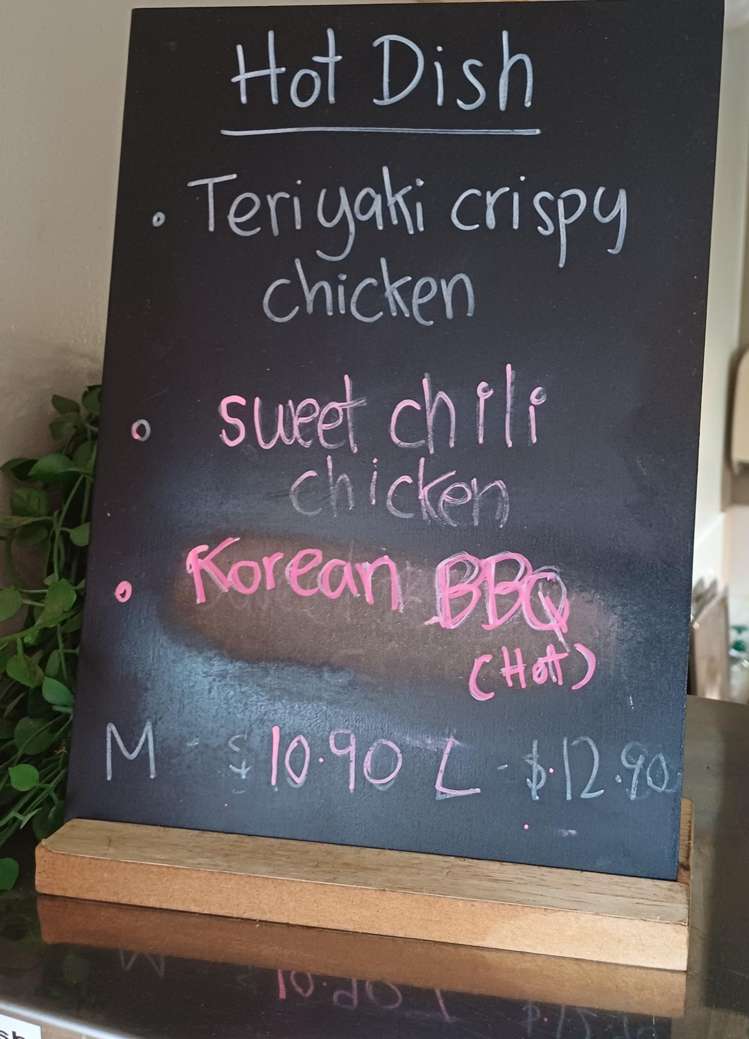 Hot Dish
• Teriyaki crispy
chicken
• sweet chili
chicken
• Korean BBQ
(Hot)
M - $10.90 L - $.12.90